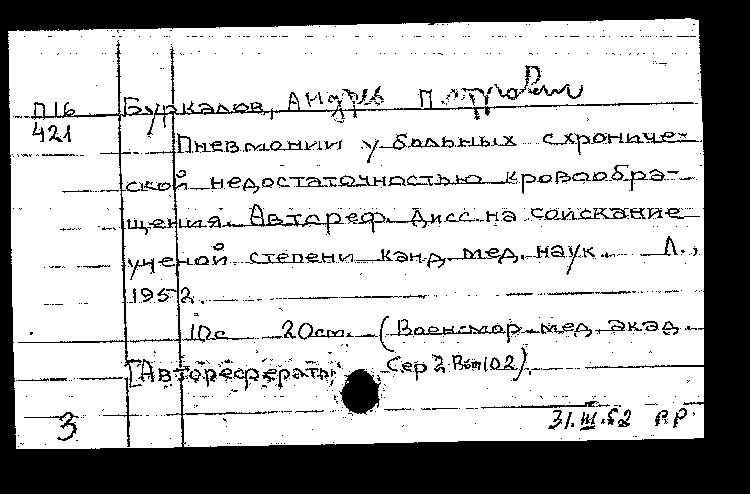 П16 Буркалов, Андрей Петрович
421 Пневмонии у больных с хрониче-
ской недостаточностью кровообра-
щения. Автореф. дисс на соискание
ученой степени канд. мед. наук. Л.,
1952.
10с 20см. (Военномор. мед. акад.
[Авторефераты Сер 2 Вып 102).
3 31.III.52 Р.Р.